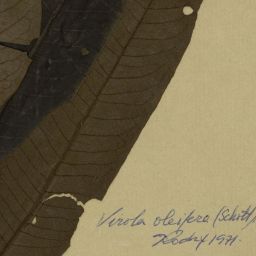 Virola oleifera (Schott)
Rodr 1971.